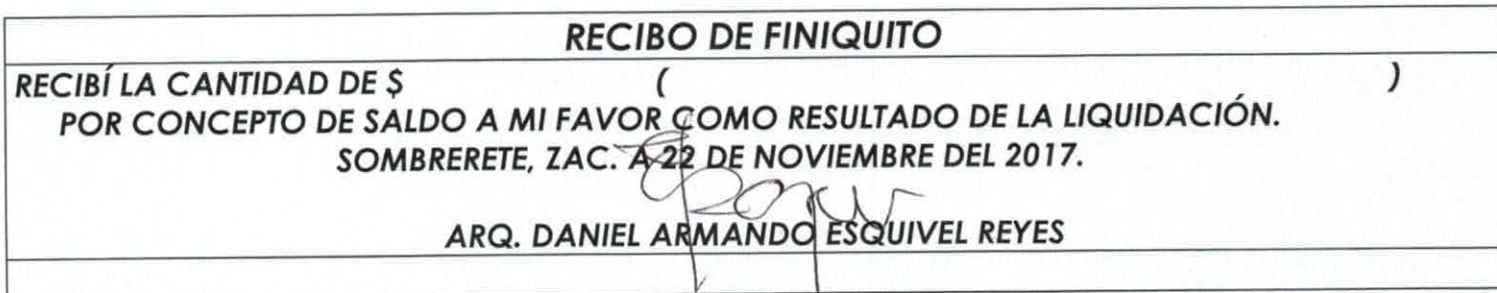 RECIBO DE FINIQUITO
RECIBÍ LA CANTIDAD DE $ ( )
POR CONCEPTO DE SALDO A MI FAVOR COMO RESULTADO DE LA LIQUIDACIÓN.
SOMBRERETE, ZAC. A 22 DE NOVIEMBRE DEL 2017.
ARQ. DANIEL ARMANDO ESQUIVEL REYES